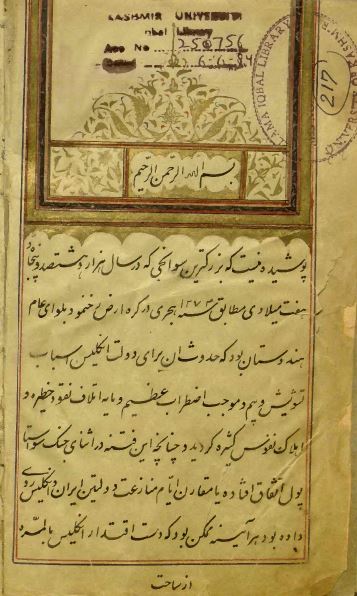 KASHMIR UNIVERSITY
Iqbal Library
Acc No 250756
Dated 6-6-84
217
IQBAL LIBRARY
بسم الله الرحمن الرحیم
پوشیده نیست که بزرگترین سوانحی که در سال هزار و هشتصد و پنجاه و
هفت میلادی مطابق سنه ۱۲۷۳ هجری در کره ارض رخ نمود بلوای عام
هندوستان بود که حدوث آن برای دولت انگلیس اسباب
تشویش و بیم و موجب اضطراب عظیم و مایه اتلاف نقود خطیره و
اهلاک نفوس کثیره گردید و چنانچه این فتنه در اثنای جنگ سواستا
پول اتفاق افتاده یا مقارن ایام منازعت دولتین ایران و انگلیس روی
داده بود هر آینه ممکن بود که دست اقتدار انگلیس بالمره
از ساحت